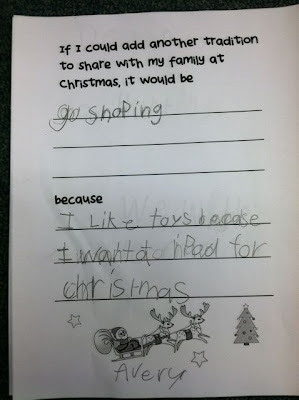 If I could add another tradition
to share with my family at
Christmas, it would be
go shoping
because
I Like toys becase
I want a ipad for
christmas
Avery